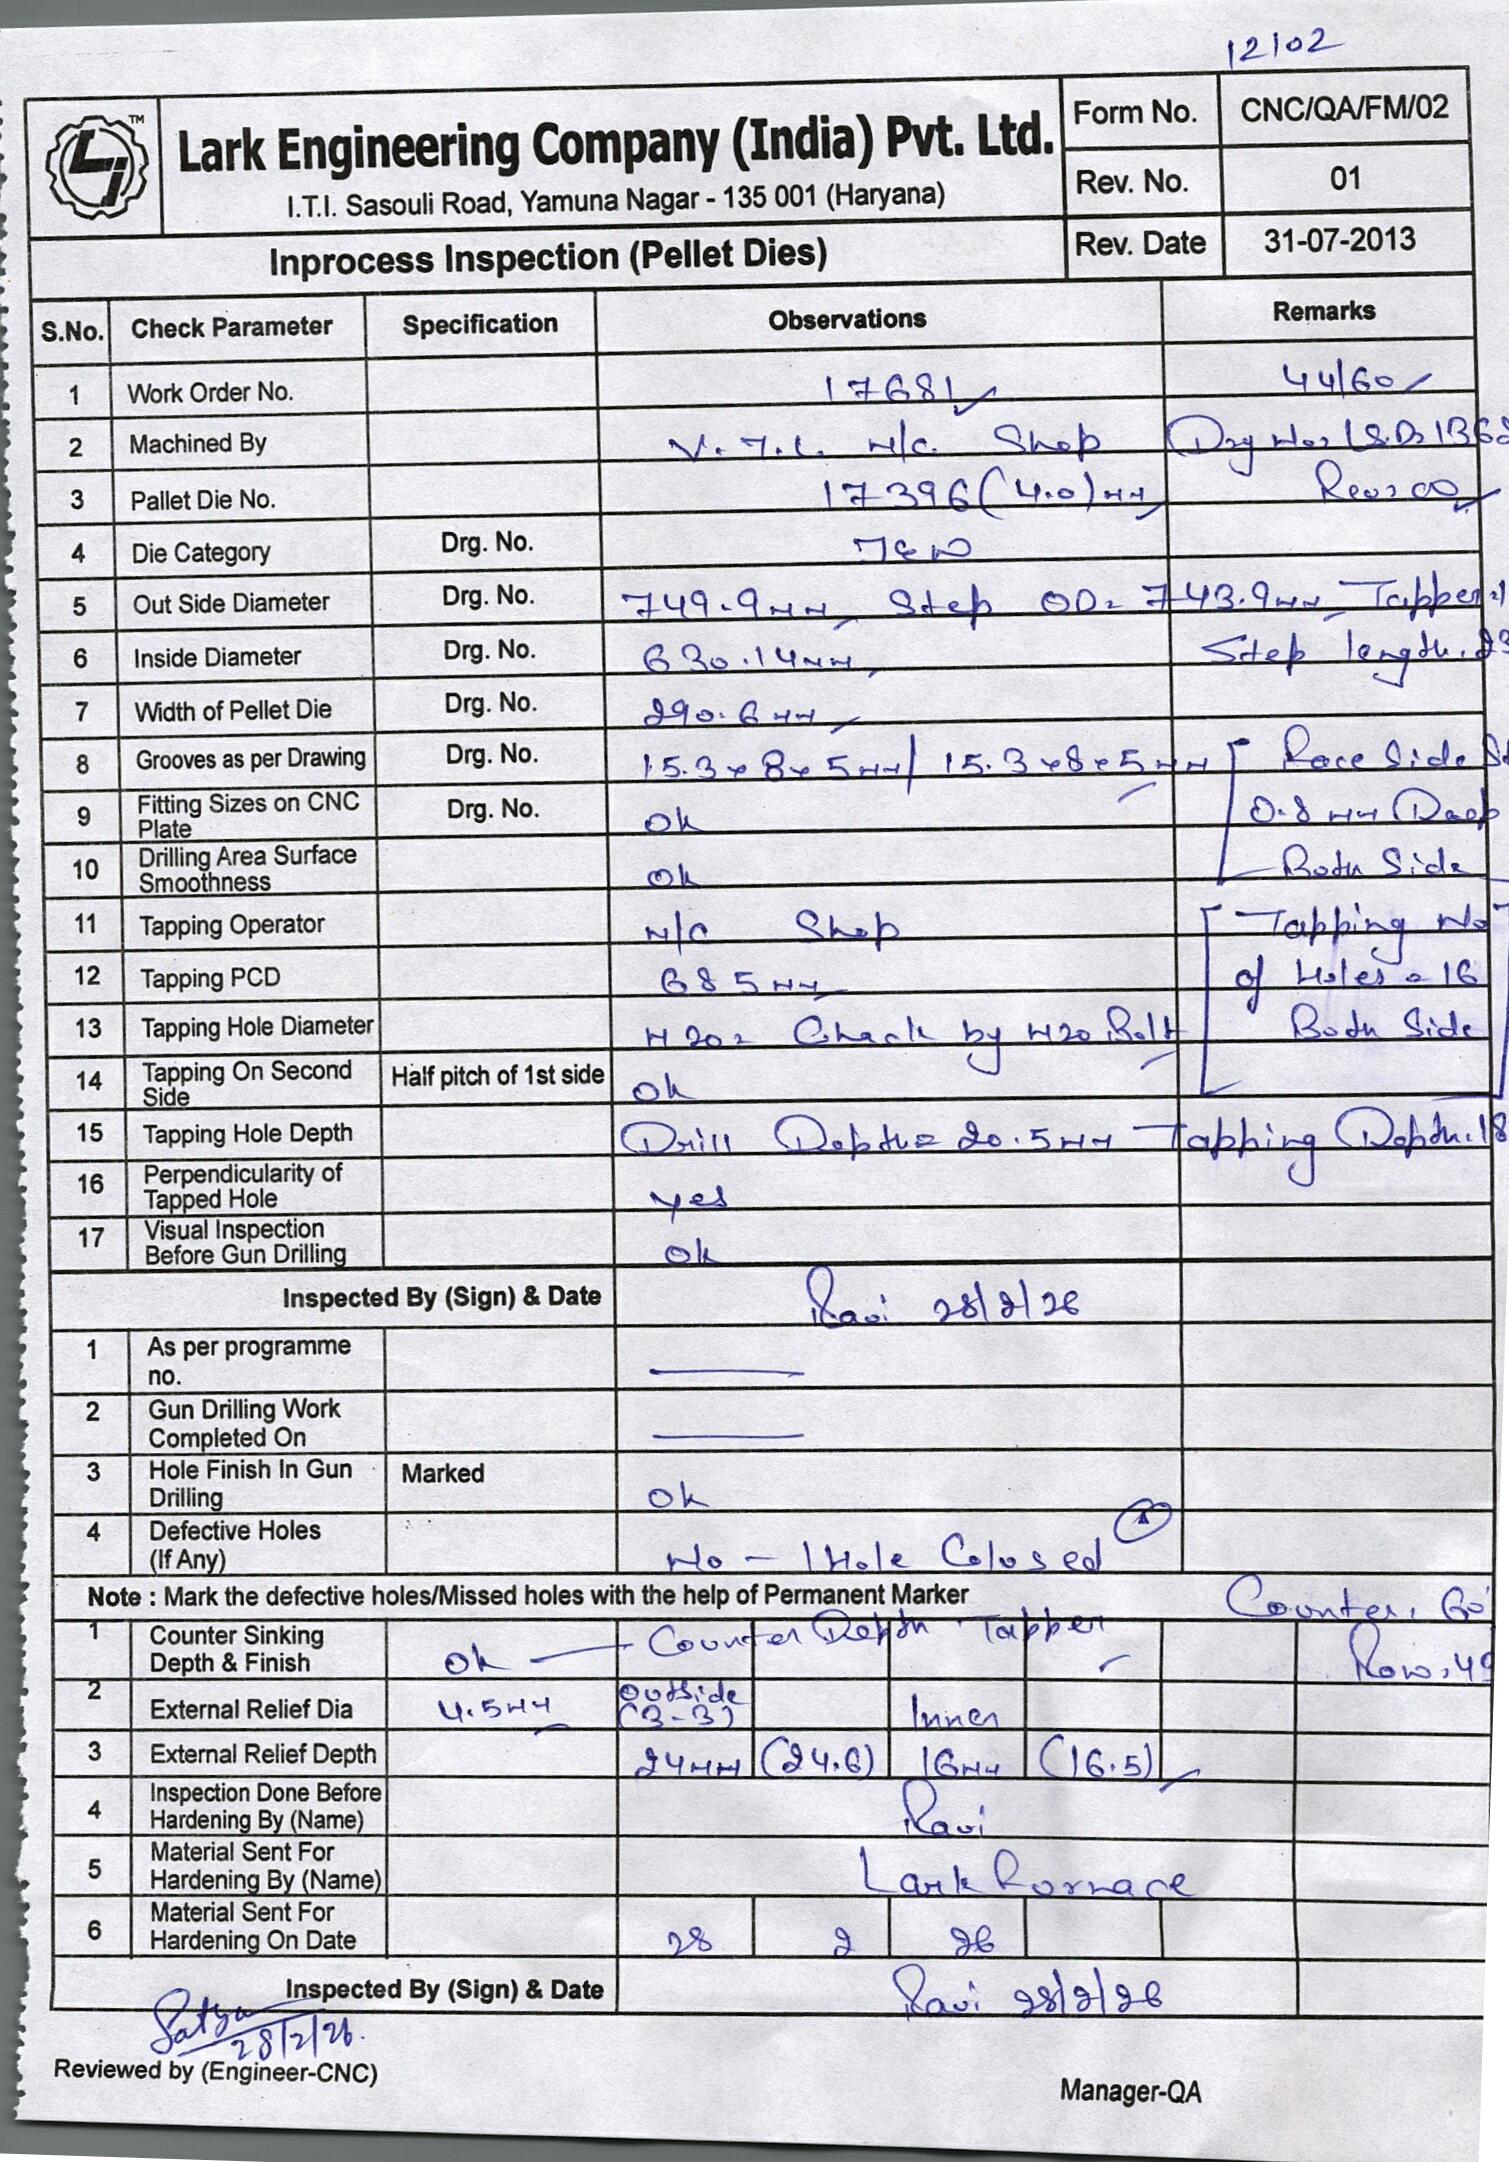 12102
TM
Lark Engineering Company (India) Pvt. Ltd.
I.T.I. Sasouli Road, Yamuna Nagar - 135 001 (Haryana)
Form No. CNC/QA/FM/02
Rev. No. 01
Inprocess Inspection (Pellet Dies)
Rev. Date 31-07-2013
S.No. Check Parameter Specification Observations Remarks
1 Work Order No. 17681 44/60
2 Machined By V.T.L. M/C. Shop Drg No: LSD
3 Pallet Die No. 17396 (4.0) MM Rev: 00
4 Die Category Drg. No.
5 Out Side Diameter Drg. No. 749.9MM Step OD= 743.9MM Tapper
6 Inside Diameter Drg. No. 630.14MM Step length.
7 Width of Pellet Die Drg. No. 290.6MM
8 Grooves as per Drawing Drg. No. 15.3x8x5MM/ 15.3x8x5MM Race Side
9 Fitting Sizes on CNC Plate Drg. No. Ok 0.8 MM Deep
10 Drilling Area Surface Smoothness Ok Both Side
11 Tapping Operator M/C Shop Tapping No
12 Tapping PCD 685MM of Holes = 16
13 Tapping Hole Diameter M20= Check by M20 Bolt Both Side
14 Tapping On Second Side Half pitch of 1st side Ok
15 Tapping Hole Depth Drill Depth= 20.5MM Tapping Depth.18
16 Perpendicularity of Tapped Hole Yes
17 Visual Inspection Before Gun Drilling Ok
Inspected By (Sign) & Date Ravi 28/2/26
1 As per programme no.
2 Gun Drilling Work Completed On
3 Hole Finish In Gun Drilling Marked Ok
4 Defective Holes (If Any) No - 1 Hole Colosed
Note : Mark the defective holes/Missed holes with the help of Permanent Marker Counter.
1 Counter Sinking Depth & Finish Ok Counter Depth Tapper Row
2 External Relief Dia 4.5MM Outside (3-3) Inner
3 External Relief Depth 24MM (24.6) 16MM (16.5)
4 Inspection Done Before Hardening By (Name) Ravi
5 Material Sent For Hardening By (Name) Lark Fornace
6 Material Sent For Hardening On Date 28 2 26
Inspected By (Sign) & Date Ravi 28/2/26
Satya
28/2/26.
Reviewed by (Engineer-CNC)
Manager-QA